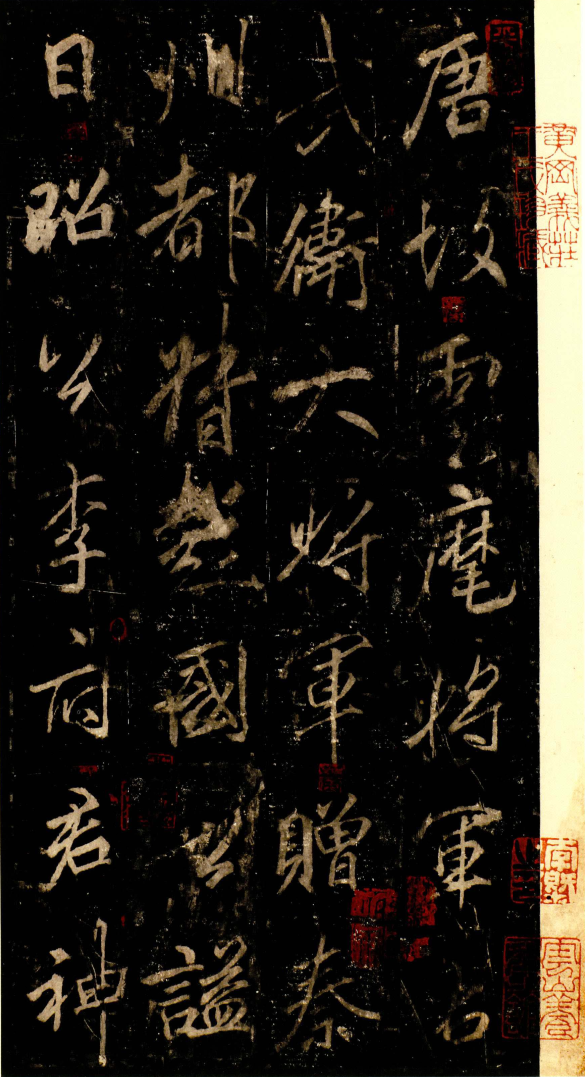 唐故雲麾將軍右
武衛大將軍贈秦
州都督彭國公謚
曰昭公李府君神